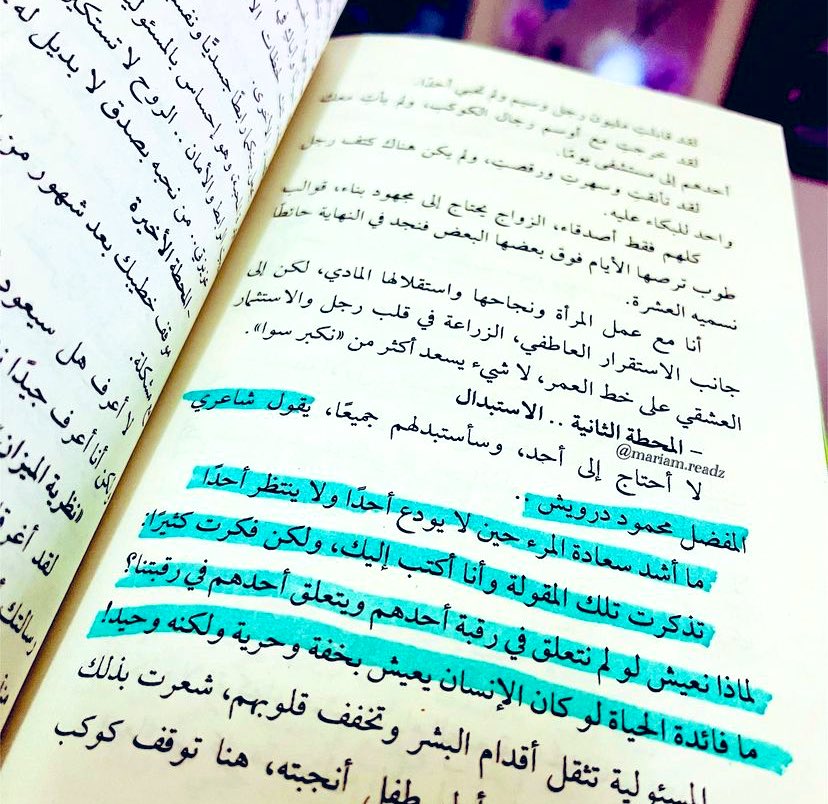 لقد قابلت مليون رجل وسيم ولم تحبي أحدًا.
لقد خرجت مع أوسم رجال الكوكب، ولم يأت معك
أحدهم إلى مستشفى يومًا.
لقد تأنقت وسهرت ورقصت، ولم يكن هناك كتف رجل
واحد للبكاء عليه.
كلهم فقط أصدقاء، الزواج يحتاج إلى مجهود بناء، قوالب
طوب ترصها الأيام فوق بعضها البعض فنجد في النهاية حائطًا
نسميه العشرة.
أنا مع عمل المرأة ونجاحها واستقلالها المادي، لكن إلى
جانب الاستقرار العاطفي، الزراعة في قلب رجل والاستثمار
العشقي على خط العمر، لا شيء يسعد أكثر من «نكبر سوا».
– المحطة الثانية .. الاستبدال
@mariam.readz
لا أحتاج إلى أحد، وسأستبدلهم جميعًا، يقول شاعري
المفضل محمود درويش ..
ما أشد سعادة المرء حين لا يودع أحدًا ولا ينتظر أحدًا
تذكرت تلك المقولة وأنا أكتب إليك، ولكن فكرت كثيرًا:
لماذا نعيش لو لم نتعلق في رقبة أحدهم ويتعلق أحدهم في رقبتنا؟
ما فائدة الحياة لو كان الإنسان يعيش بخفة وحرية ولكنه وحيد!
المسئولية تثقل أقدام البشر وتخفف قلوبهم، شعرت بذلك
طفل أنجبته، هنا توقف كوكب
وهو إحساس بالمسئولية
والأمان .. الروح لا تستكين
من نحبه بصدق لا بديل له
– المحطة الأخيرة
توقف خطيبك بعد شهور من
مشكلة.
لا أعرف هل سيعود
لكن أنا أعرف جيدًا
«نظرية الميزان»
لقد أغرقا
رسالتك